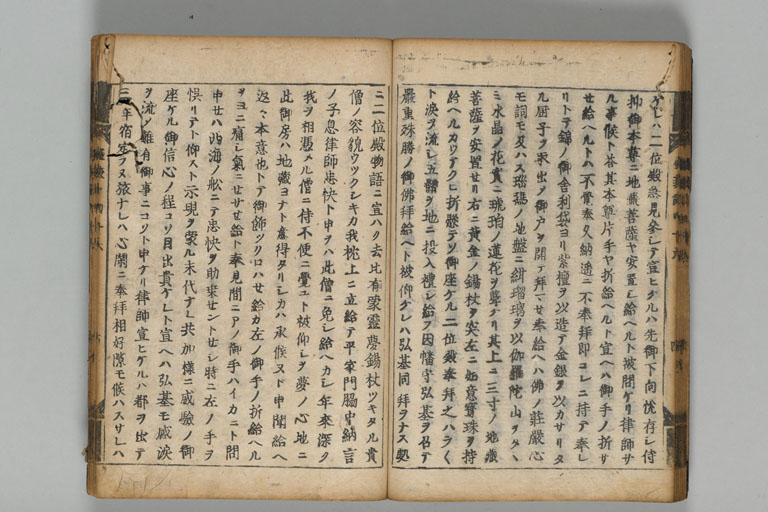 ケレハ二位殿急見参シテ宣ヒケルハ先御下向悦存シ侍
抑御本尊ニ地蔵菩薩ヤ安置シ給ヘルト被問ケリ律師サ
ル事候ト答其本尊片手ヤ折給ヘルト宣ヘハ御手ノ折サ
セ給ヘルトハ不覚奉久納遥ニ不奉拝即コレニ持テ奉レ
リトテ錦ノ御舎利袋ヨリ紫檀ヲ以造テ金銀ヲ以カサリタ
ル厨子ヲ取出シ御戸ヲ開テ拝マセ奉給ヘハ佛ノ荘厳心
モ詞モ及ハス瑠璃ノ地盤ニ紺瑠璃ヲ以伽羅陀山ヲタヽ
ミ水晶ノ花実ニ琥珀ノ蓮花ヲ葺テリ其上ニ三寸ノ地蔵
菩薩ヲ安置セリ右ニ黄金ノ錫杖ヲ突左ニ如意宝珠ヲ持
給ヘルカウテクヒ折懸テソ御座ケル二位殿奉拝之ハラ〳〵
ト涙ヲ流シ五體ヲ地ニ投入禮シ給フ因幡守弘基ヲ召テ
厳重殊勝ノ御佛拝給ヘト被仰ケレハ弘基同拝ヲナス契
ニ二位殿物語ニ宣ハク去比有蒙霊夢錫杖ツキタル貴
僧ノ容貌ウツクシキカ我枕上ニ立給テ平家門脇中納言
ノ子息律師忠快ト申ヲハ此僧ニ免シ給ヘカシ年来深ク
我ヲ相憑メル僧ニ侍不便ニ覚ユト被仰シヲ夢ノ心地ニ
此御房ハ地蔵ヨナト意得タリシカハ承候ヌト申開給ヘ
返々本意也トテ御錫ツクロハセ給カ左ノ御手ノ折給ヘル
ヲヨニ痛シ気ニセサセ給ト奉見間ニアノ御手ハイカニト問
申セハ西海ノ船ニテ忠快ヲ助乗セントセシ時ニ左ノ手ヲ
悞リテト仰スト示現ヲ蒙ル末代ナレ共加様ニ感験ノ御
座ケル御信心ノ程コソ目出貴ケレト宣ヘハ弘基モ感涙
ヲ流ノ難有御事ニコソト申ケリ律師宣ヒケルハ都ヲ出テ
三年宿定ヌ旅ナレハ心閑ニ奉拝相好隙モ候ハスサレハ